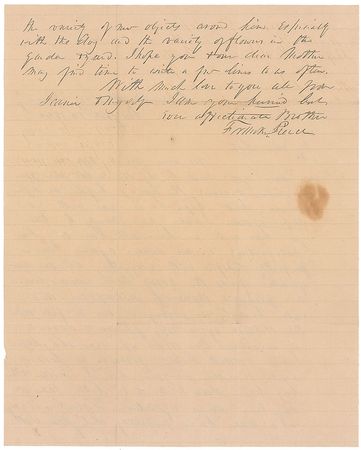 the variety of new objects around him. Especially
with the dog and the variety of flowers in the
Garden & yard. I hope you & our dear Mother
may find time to write a few lines to us often.
With much love to you all from
& myself I am your but
affectionate Brother
Pierce